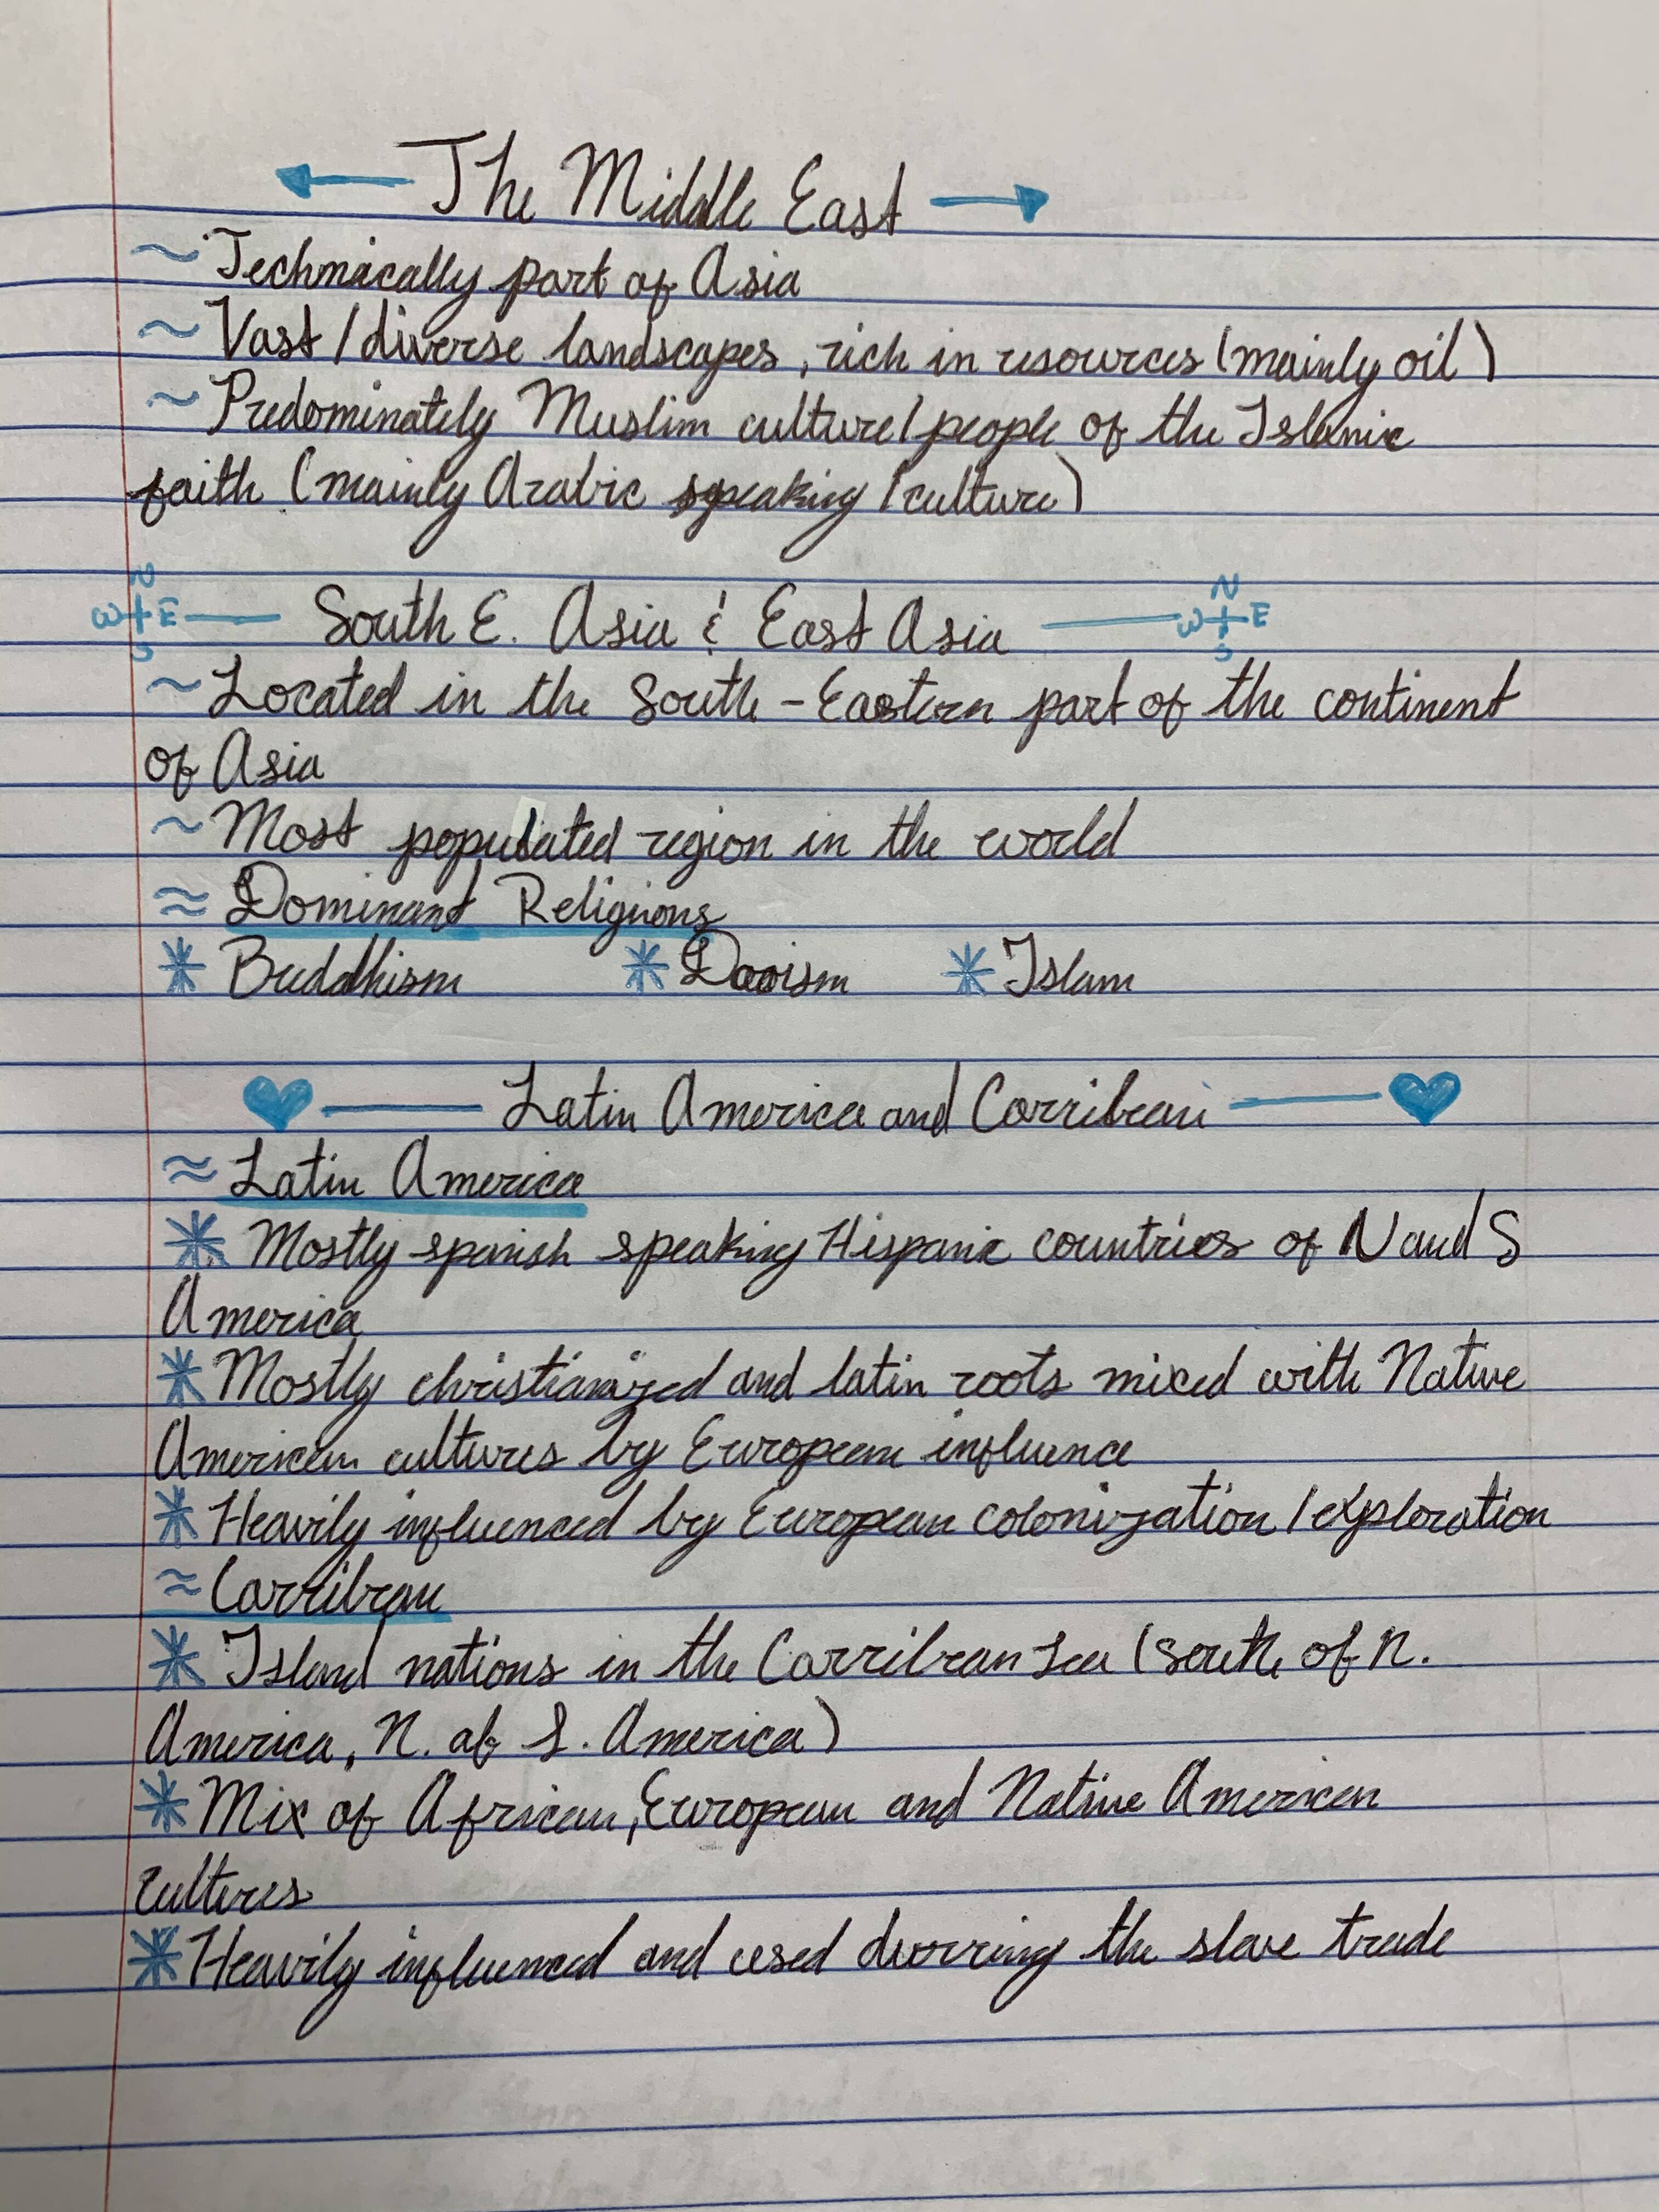 ← The Middle East →
~ Technically part of Asia
~ Vast / diverse landscapes, rich in resources (mainly oil)
~ Predominately Muslim culture / people of the Islamic
faith (mainly Arabic speaking / culture)
N
W + E — South E. Asia & East Asia — W + E
S
~ Located in the South-Eastern part of the continent
of Asia
~ Most populated region in the world
≈ Dominant Religions
* Buddhism * Daoism * Islam
♥ — Latin America and Corribean — ♥
≈ Latin America
* Mostly spanish speaking Hispanic countries of N and S
America
* Mostly christianized and latin roots mixed with Native
American cultures by European influence
* Heavily influenced by European colonization / exploration
≈ Carribean
* Island nations in the Carribean Sea (south of N.
America, N. of S. America)
* Mix of African, European and Native American
cultures
* Heavily influenced and used durring the slave trade